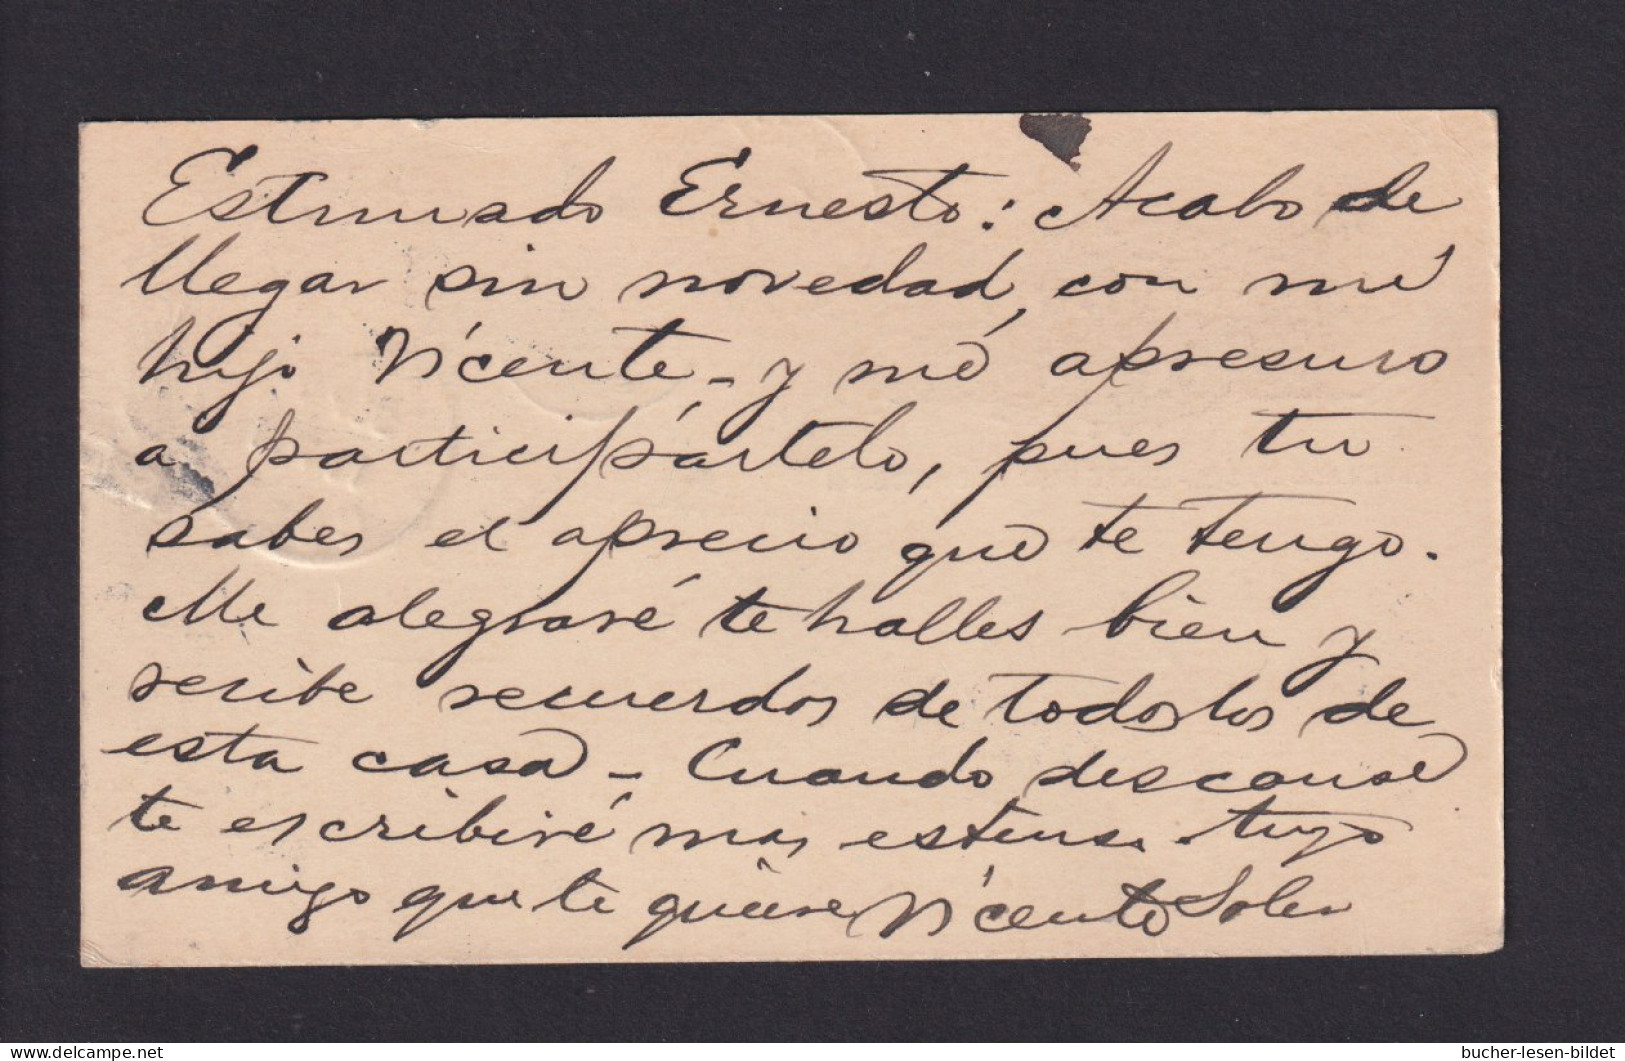 Estimado Ernesto: Acabo de
llegar sin novedad, con mi
hijo Vicente, - y me apresuro
a participártelo, pues tu
sabes el aprecio que te tengo.
Me alegraré te halles bien y
recibe recuerdos de todos los de
esta casa - Cuando descanse
te escribiré mas estenso. tuyo
amigo que te quiere Vicente Soler
bucher-lesen-bildet